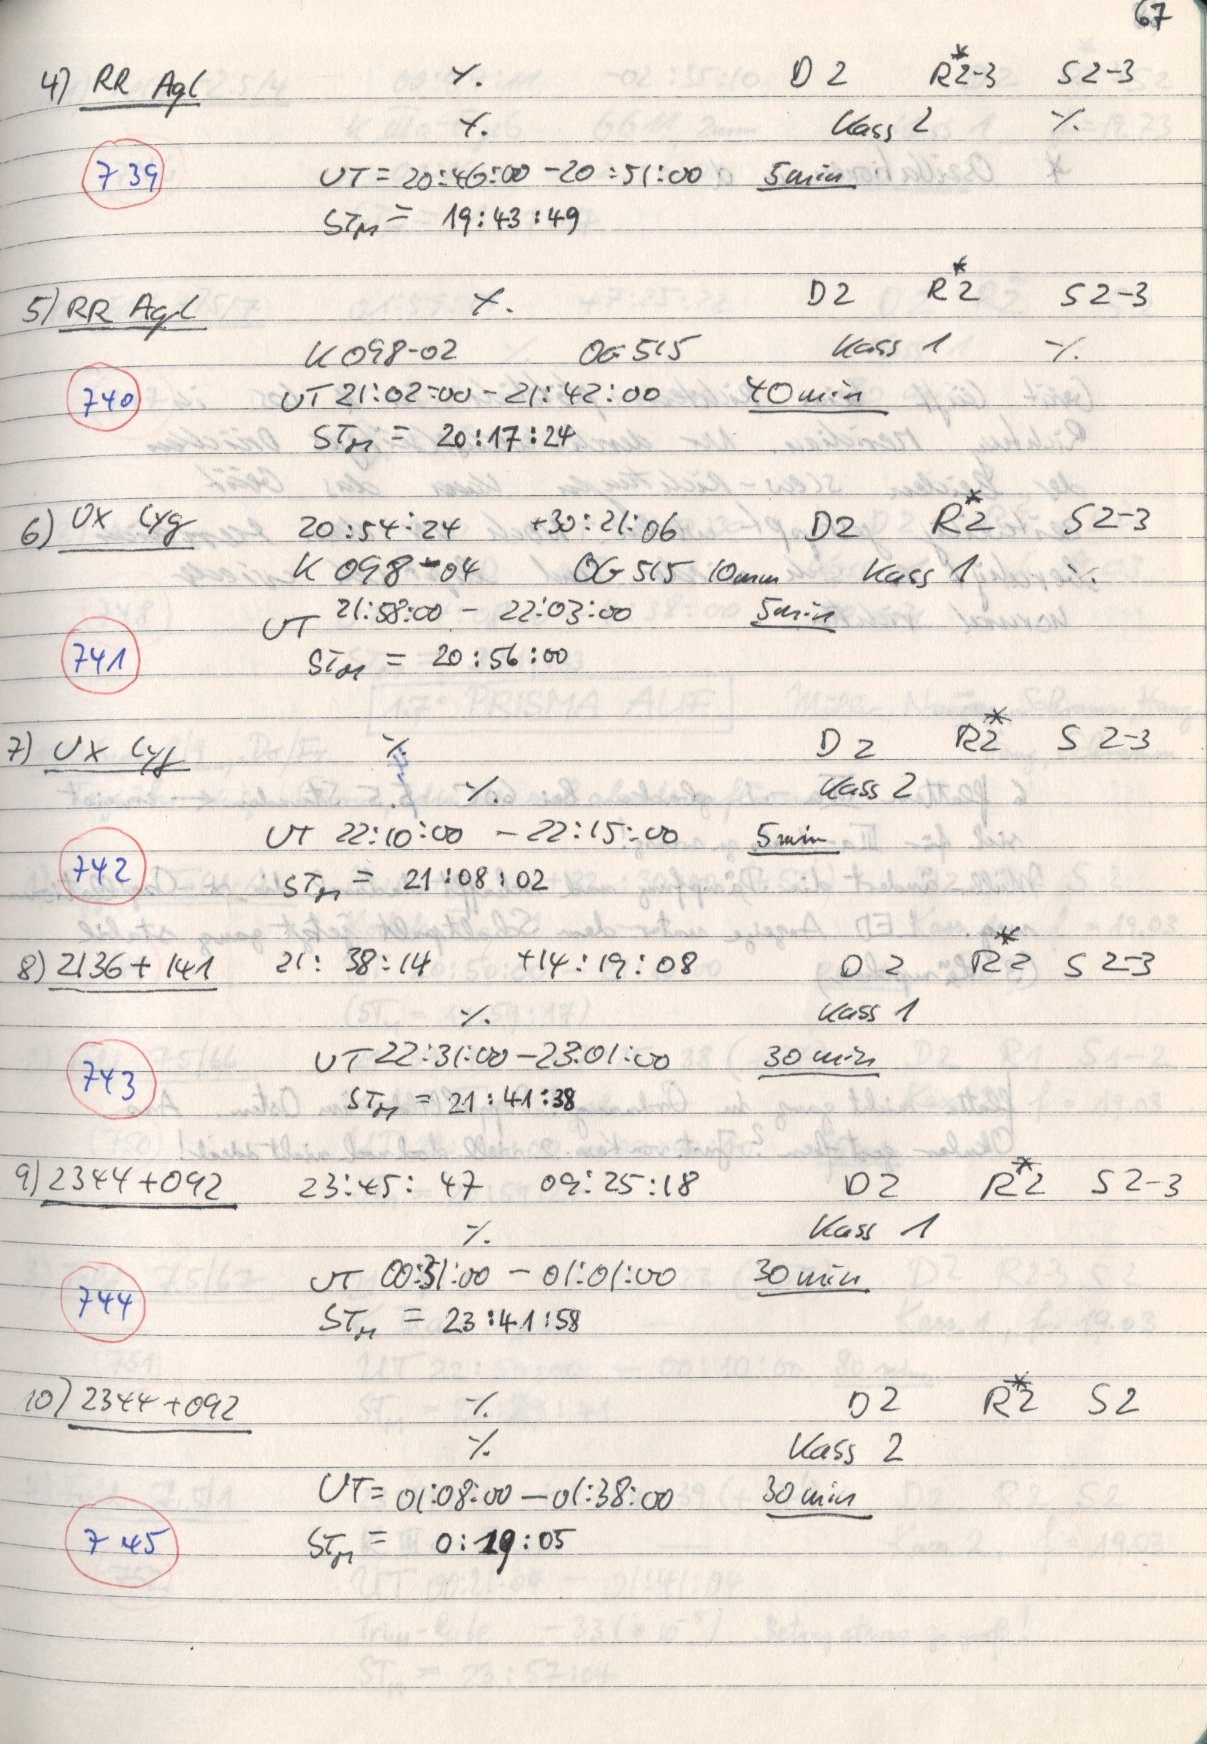 67
4) RR Aql ٪. D2 R2-3* S2-3
٪. Kass 2 ٪.
739 UT = 20:46:00 - 20:51:00 5min
STM = 19:43:49
5) RR Aql ٪. D2 R2* S2-3
K098-02 OG515 Kass 1 ٪.
740 UT 21:02:00 - 21:42:00 40min
STM = 20:17:24
6) UX Cyg 20:54:24 +30:21:06 D2 R2* S2-3
K098-04 OG515 10mm Kass 1 ٪.
UT 21:58:00 - 22:03:00 5min
741 STM = 20:56:00
7) UX Cyg ٪. D2 R2* S2-3
٪. Kass 2
UT 22:10:00 - 22:15:00 5min
742 STM = 21:08:02
8) 2136+141 21:38:14 +14:19:08 D2 R2* S2-3
٪. Kass 1
UT 22:31:00 - 23:01:00 30min
743 STM = 21:41:38
9) 2344+092 23:45:47 09:25:18 D2 R2* S2-3
٪. Kass 1
UT 00:31:00 - 01:01:00 30min
744 STM = 23:41:58
10) 2344+092 ٪. D2 R2* S2
٪. Kass 2
UT = 01:08:00 - 01:38:00 30min
745 STM = 0:19:05